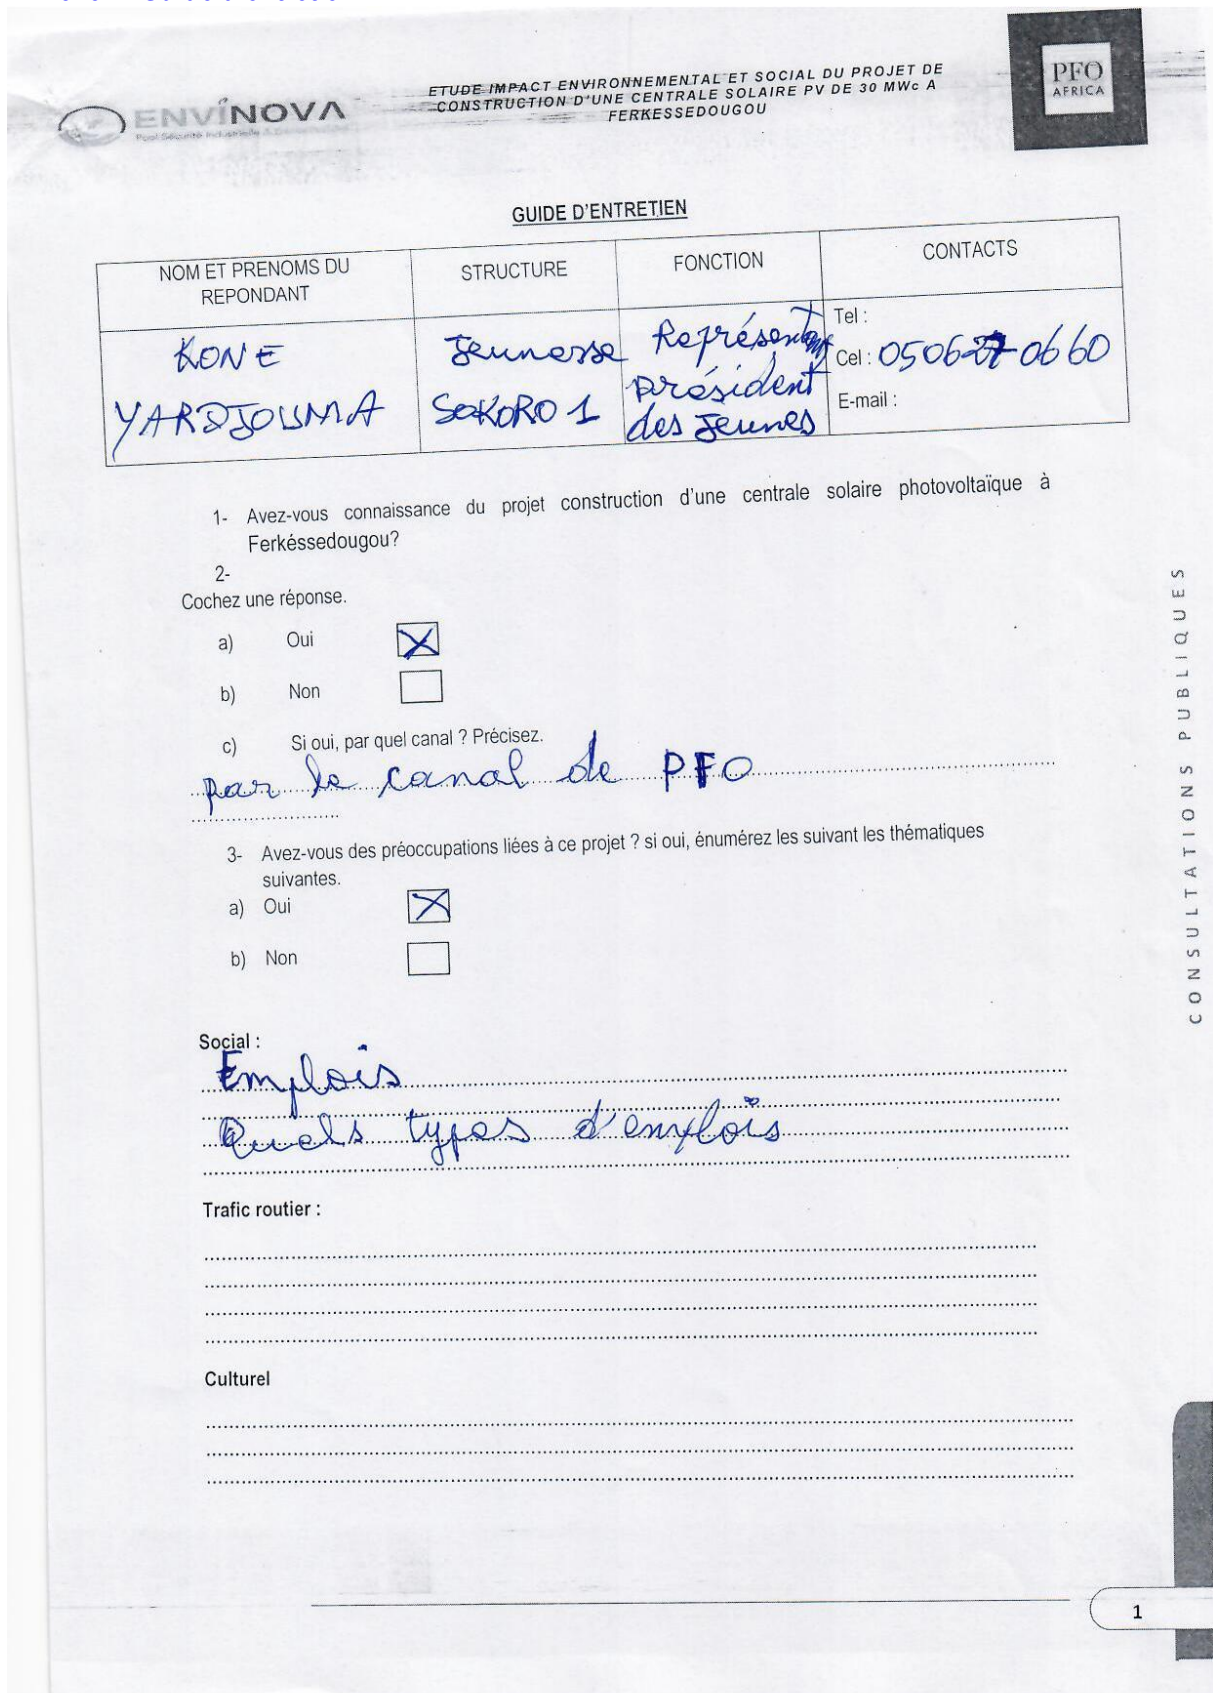 ETUDE IMPACT ENVIRONNEMENTAL ET SOCIAL DU PROJET DE
CONSTRUCTION D'UNE CENTRALE SOLAIRE PV DE 30 MWc A
FERKESSEDOUGOU
ENVÍNOVA
PFO
AFRICA
GUIDE D'ENTRETIEN
NOM ET PRENOMS DU
REPONDANT
STRUCTURE
FONCTION
CONTACTS
KONE
YARDJOUMA
Jeunesse
SOKORO 1
Représentant
président
des Jeunes
Tel :
Cel : 0506 27 0660
E-mail :
1- Avez-vous connaissance du projet construction d'une centrale solaire photovoltaïque à
Ferkéssedougou?
2-
Cochez une réponse.
a) Oui X
b) Non
c) Si oui, par quel canal ? Précisez.
par le canal de PFO
3- Avez-vous des préoccupations liées à ce projet ? si oui, énumérez les suivant les thématiques
suivantes.
a) Oui X
b) Non
Social :
Emplois
Quels types d'emplois
Trafic routier :
Culturel
CONSULTATIONS PUBLIQUES
1